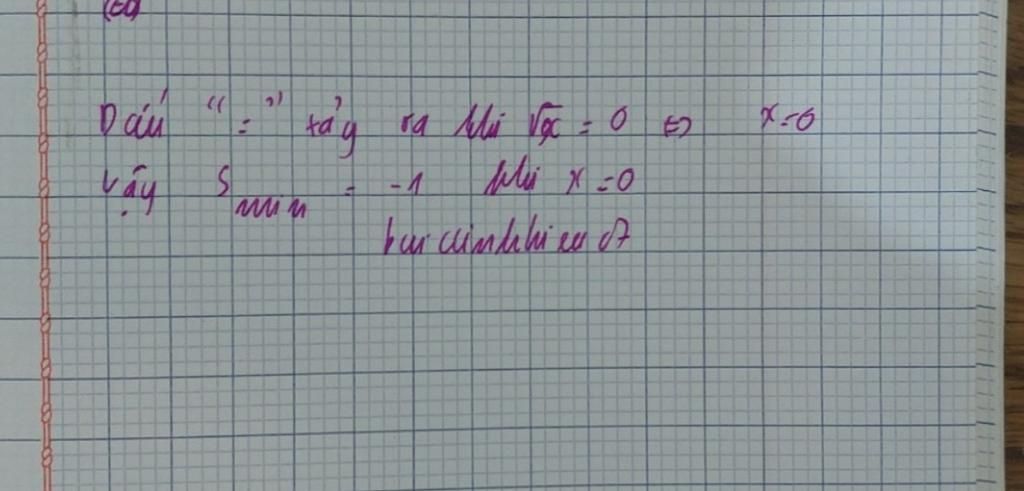 Dấu "=" xảy ra khi √x = 0 ⇔ x=0
Vậy S min = -1 khi x=0